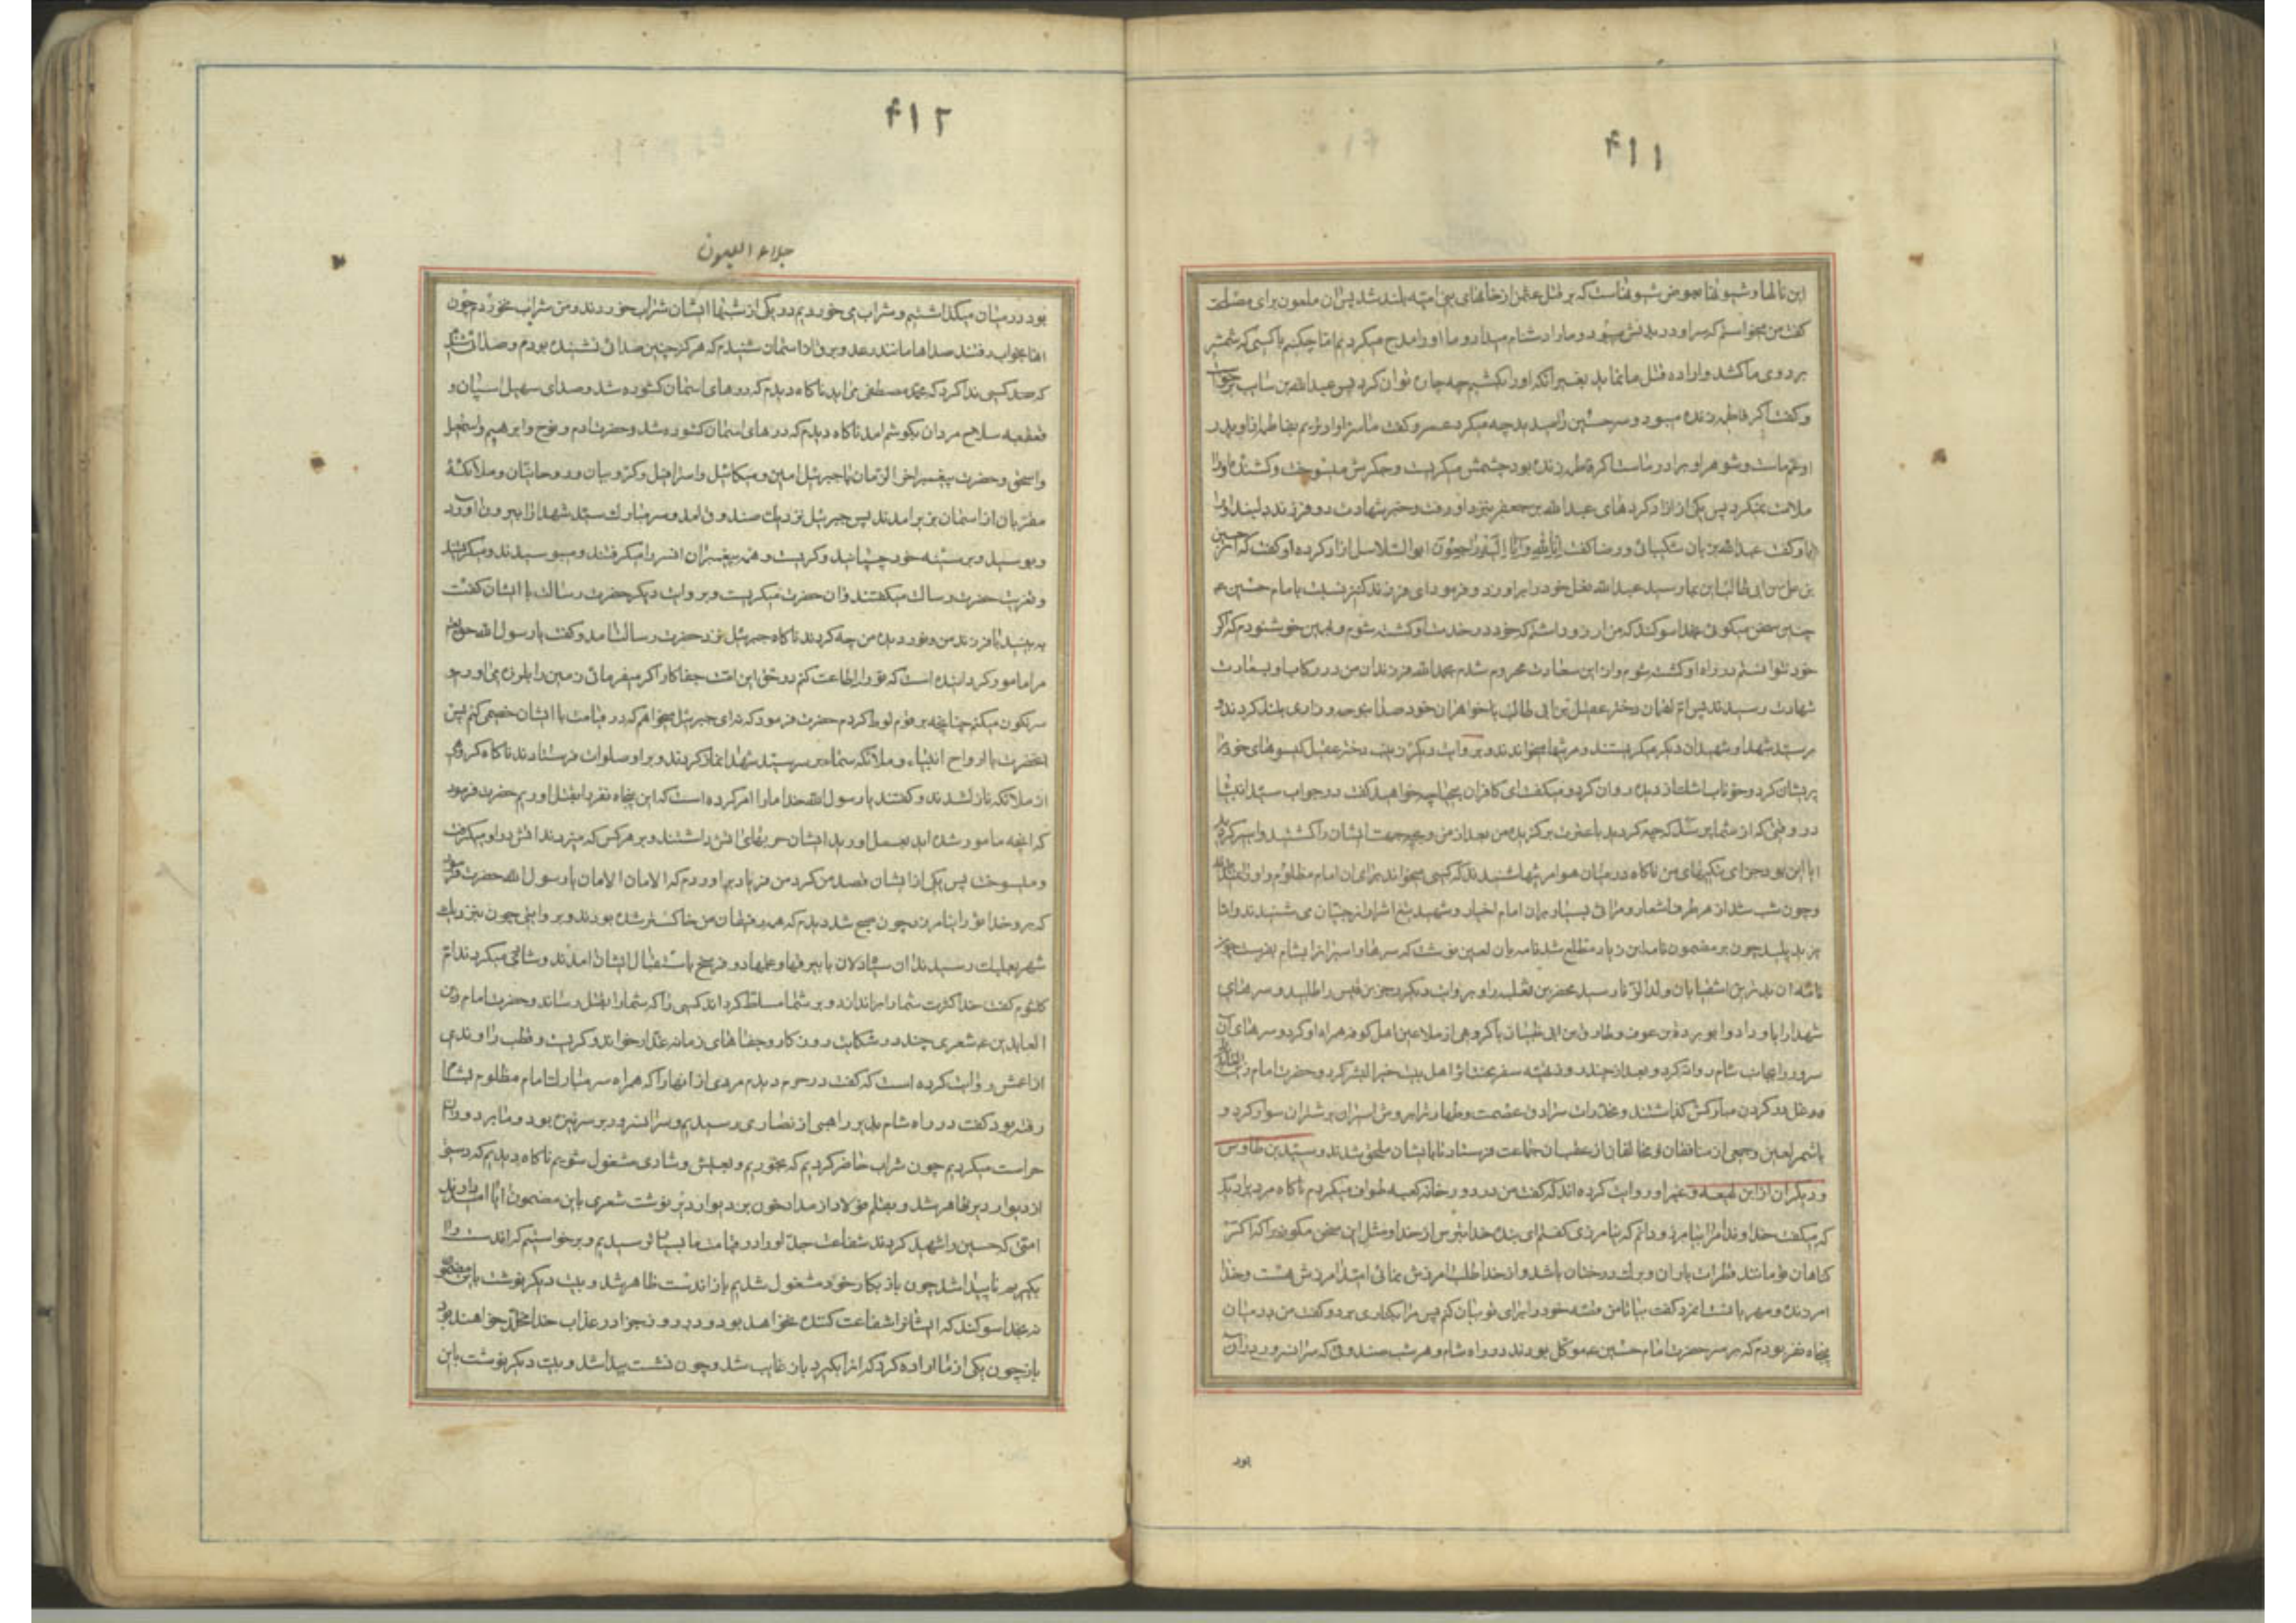 ۴۱۱
این نالها و شیونها بعوض شیونهاست که بر قتل عثمن از خانهای بنی امیه بلند شد پس ان ملعون برای مصلحت
کفت من میخواستم که سر او در بدنش میبود و مارا دشنام میداد و ما او را مدح میکردیم اما چکنیم با کسی که شمشیر
بر روی ما کشد و اراده قتل ما نماید بغیر انکه او را بکشیم چه چاره توان کرد پس عبدالله بن سایب برخواست
و کفت اکر فاطمه زنده میبود و سر حسین را میدید چه میکرد عمرو کفت ما سزاوارتریم بفاطمه از تو پدر
او عم ماست و شوهر او برادر ماست اکر فاطمه زنده بود چشمش میکریست و جکرش میسوخت و کشنده او را
ملامت نمیکرد پس یکی از ازاد کردهای عبدالله بن جعفر بنزد او رفت و خبر شهادت دو فرزند دلبند او را
باو کفت عبدالله بزبان شکیبائی و رضا کفت انا لله و انا الیه راجعون ابوالسلاسل ازاد کرده او کفت که انچه از حسین
بن علی بن ابی طالب این بما رسید عبدالله نعل خود را براورد و فرمود ای فرزند کنیز نسبت بامام حسین ع
چنین سخن میکوئی بخدا سوکند که من ارزو داشتم که خود در خدمت او کشته شوم و بهمین خوشنودم که اکر
خود نتوانستم در راه او کشته شوم و از این سعادت محروم شدم بحمدالله فرزندان من در رکاب او بسعادت
شهادت رسیدند پس ام لقمان دختر عقیل بن ابی طالب با خواهران خود صدا بنوحه و زاری بلند کردند و
بر سید شهدا و شهیدان دیکر میکریستند و مرثیها میخواندند و بروایت دیکر زینب دختر عقیل کیسوهای خود را
پریشان کرد و خوناب اشک از دیده روان کرد و میکفت ای کافران بیحیا چه خواهید کفت در جواب سید انبیا
در وقتی که از شما پرسد که چه کردید با عترت برکزیده من بعد از من و بچه جهت ایشان را کشتید و اسیر کردید
ایا این بود جزای نیکیهای من ناکاه در میان هوا مرثیها شنیدند که کسی میخواند برای ان امام مظلوم و او را نمیدیدند
و چون شب شد از هر طرف اشعار و مراثی بسیار بران امام اخیار و شهید تیغ اشرار از جنیان می شنیدند و اما
یزید پلید چون بر مضمون نامه ابن زیاد مطلع شد نامه بان لعین نوشت که سرها و اسیرانرا بشام بفرست چون
نامه ان بدترین اشقیا بان ولد الزنا رسید محفز بن ثعلبه را و بروایت دیکر زحر بن قیس را طلبید و سرهای
شهدا را باو داد و ابو برده بن عوف و طارق بن ابی ظبیان با کروهی از ملاعین اهل کوفه همراه او کرد و سرهای آن
سرور را بجانب شام روانه کرد و بعد از چند روز تهیه سفر مخدرات اهل بیت خیر البشر کرد و حضرت امام زین العابدین
را غل در کردن مبارکش کذاشتند و مخدرات سرادق عصمت و طهارت را بروش اسیران بر شتران سوار کرد و
با شمر لعین و جمعی از منافقان و مخالفان از عقب ان جماعت فرستاد تا بایشان ملحق شدند و سید بن طاوس
و دیکران از ابن لهیعه و غیر او روایت کرده اند که کفت من در دور خانه کعبه طواف میکردم ناکاه مردیرا دیدم
که میکفت خداوندا مرا بیامرز و دانم که نیامرزی کفتم ای بنده خدا بترس از خدا و مثل این سخن مکو زیرا که اکر
کناهان تو مانند قطرات باران و برک درختان باشد و از خدا طلب امرزش نمائی امید امرزش هست و خدا
امرزنده و مهربانست انمرد کفت بیا تا من قصه خود را برای تو بیان کنم پس مرا بکناری برد و کفت من در میان
پنجاه نفر بودم که بر سر حضرت امام حسین ع موکل بودند در راه شام و هر شب صندوقی که سر انسرور دران
بود
۴۱۲
جلاء العیون
بود در میان میکذاشتیم و شراب می خوردیم در یکی از شبها ایشان شراب خوردند و من شراب نخوردم چون
انها بخواب رفتند صداها مانند رعد و برق از اسمان شنیدم که هرکز چنین صدائی نشنیده بودم و صدائی شنیدم
که کسی ندا کرد که محمد مصطفی می اید ناکاه دیدم که درهای اسمان کشوده شد و صدای سهیل اسپان و
قعقعه سلاح مردان بکوشم امد ناکاه دیدم که درهای اسمان کشوده شد و حضرت ادم و نوح و ابرهیم و اسمعیل
و اسحق و حضرت پیغمبر اخر الزمان با جبرئیل امین و میکائیل و اسرافیل و کروبیان و روحانیان و ملائکه
مقربان از اسمان بزیر امدند پس جبرئیل نزدیک صندوق امد و سر مبارک سید شهدا را بیرون اورد
و بوسید و بر سینه خود چسپانید و کریست و همه پیغمبران انسر را میکرفتند و میبوسیدند و میکریستند
و تعزیت حضرت رسالت میکفتند و ان حضرت میکریست و بروایت دیکر حضرت رسالت با ایشان کفت
به بینید با فرزند من و نور دیده من چه کردند ناکاه جبرئیل نزد حضرت رسالت امد و کفت یا رسول الله حق تعالی
مرا مامور کردانیده است که تو را اطاعت کنم در حق این امت جفا کار اکر میفرمائی زمین را بلرزه می اورم و
سرنکون میکنم چنانچه بر قوم لوط کردم حضرت فرمود که نه ای جبرئیل میخواهم که در قیامت با ایشان خصمی کنم پس
انحضرت با ارواح انبیاء و ملائکه سماء بر سر سید شهدا نماز کردند و بر او صلوات فرستادند ناکاه کروهی
از ملائکه نازل شدند و کفتند یا رسول الله خدا ما را امر کرده است که این پنجاه نفر را بقتل اوریم حضرت فرمود
که انچه مامور شده اید بعمل اورید ایشان حربهای اتش داشتند و بر هر کس که میزدند اتش در او میکرفت
و میسوخت پس یکی از ایشان قصد من کرد من فریاد براوردم که الامان الامان یا رسول الله حضرت فرمود
که برو خدا تو را نیامرزد چون صبح شد دیدم که همه رفیقان من خاکستر شده بودند و بروایتی چون بنزدیک
شهر بعلبک رسیدند ان سیاه دلان با بیرقها و علمها دو فرسخ باستقبال ایشان امدند و شادی میکردند ام
کلثوم کفت خدا کثرت شما را براندازد و بر شما مسلط کرداند کسی را که شما را بقتل رساند و حضرت امام زین
العابدین ع شعری چند در شکایت روزکار و جفاهای زمانه غدار خواند و کریست و قطب راوندی
از اعمش روایت کرده است که کفت در حرم دیدم مردی از انها را که همراه سر مبارک امام مظلوم بشام
رفته بود کفت در راه شام بدیر راهبی از نصاری رسیدیم و سر انسرور بر سر نیزه بود و ما بر دور ان
حراست میکردیم چون شراب حاضر کردیم که بخوریم و بعیش و شادی مشغول شویم ناکاه دیدیم که دستی
از دیوار دیر ظاهر شد و بقلم فولاد از مداد خون بر دیوار دیر نوشت شعری باین مضمون ایا امید دارند
امتی که حسین را شهید کردند شفاعت جد او را در قیامت ما بسیار ترسیدیم و برخواستیم که اندست را
بکیریم ناپیدا شد چون باز بکار خود مشغول شدیم باز اندست ظاهر شد و بیت دیکر نوشت باین مضمون
نه بخدا سوکند که ایشانرا شفاعت کننده نخواهد بود و در روز جزا در عذاب خدا مخلد خواهند بود
باز چون یکی از ما اراده کرد که انرا بکیرد باز غایب شد و چون نشست پیدا شد و بیت دیکر نوشت باین